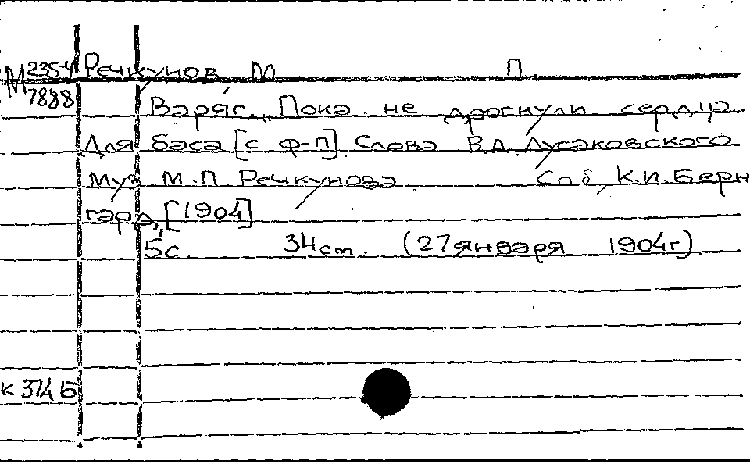 М 235-4 Речкунов М П
7888 Варяг. Пока не дрогнули сердца
Для баса [с ф-п] Слова В.А. Лусаковского
Муз М.П. Речкунова Спб, К.И. Берн
гард, [1904]
5с. 34cm. (27 января 1904г)
к 314 Б